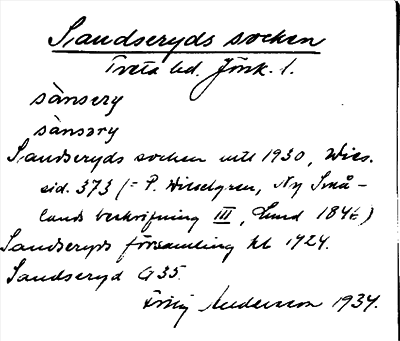 Sandseryds socken
Tveta hd. Jönk. l.
sànsery
sànsəry
Sandseryds socken mtl 1930, Wies.
sid. 373 (= P. Wieselgren, Ny Små-
lands beskrifning III, Lund 1846)
Sandseryds församling kb 1924.
Sandseryd G 35.
Andersson 1934.